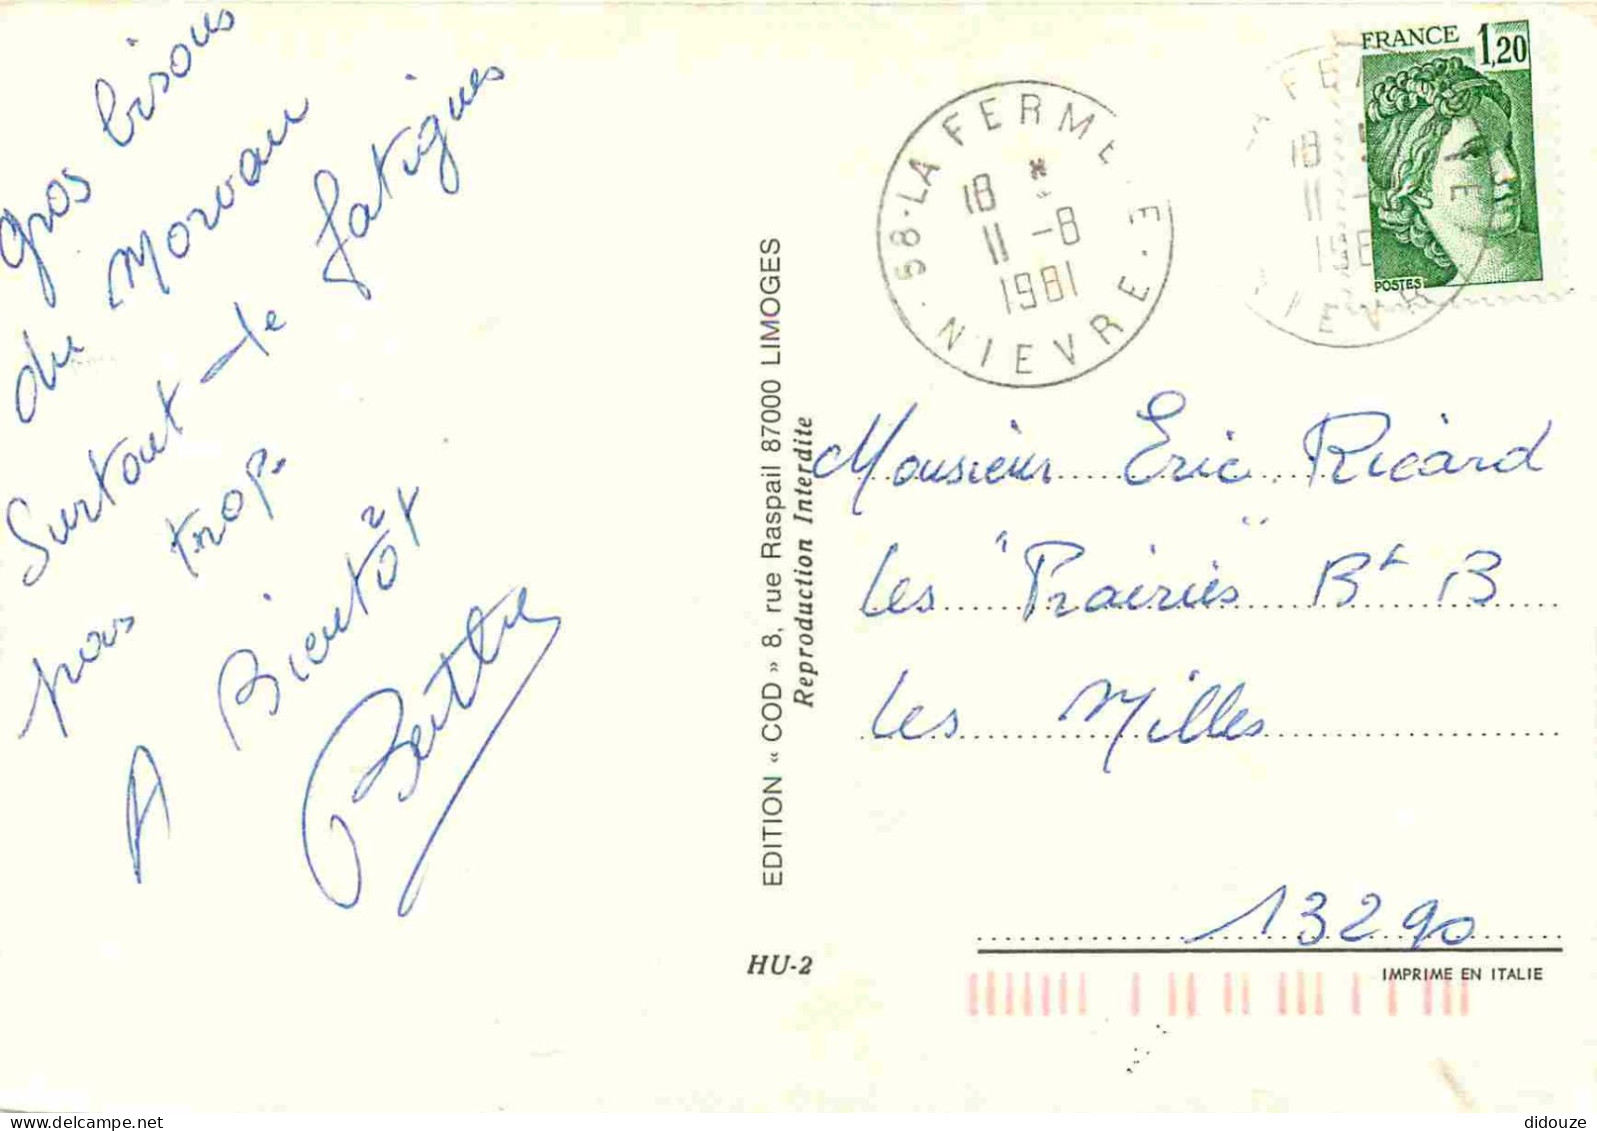 gros bisous
du Morvan
Surtout te fatigues
pas trop.
A Bientôt
FRANCE 1,20
POSTES
58 - LA FERME E
18 *
11 -8
1981
NIEVRE
EDITION « COD » 8, rue Raspail 87000 LIMOGES
Reproduction Interdite
HU-2
Monsieur Eric Ricard
Les "Prairies" Bt B
Les Milles
13290
IMPRIME EN ITALIE
didouze